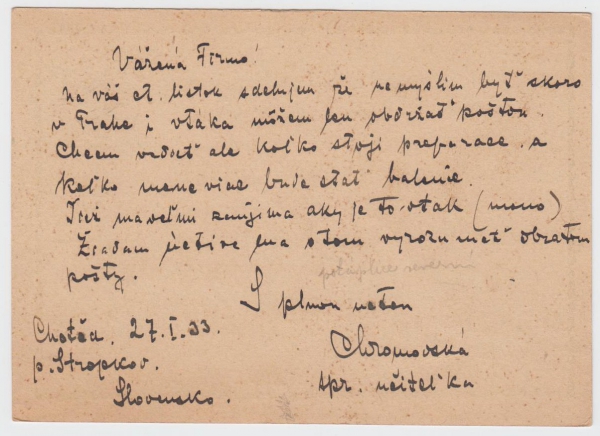 Vážená Firmo!
na váš ct. lístok sdelujem že nemyslím byť skoro
v Prahe i vtáka môžem len obdržať poštou.
Chcem vedieť ale koľko stojí preparace a
koľko mene viac bude stať balenie.
Tiež ma veľmi zaujíma aký je to vtak (meno)
Žiadam úctive ma o tom vyrozumeť obratom
pošty.
S plnou úctou
Chotča 27.I.33
p. Stropkov.
Slovensko.
Chromovská
spr. učiteľka